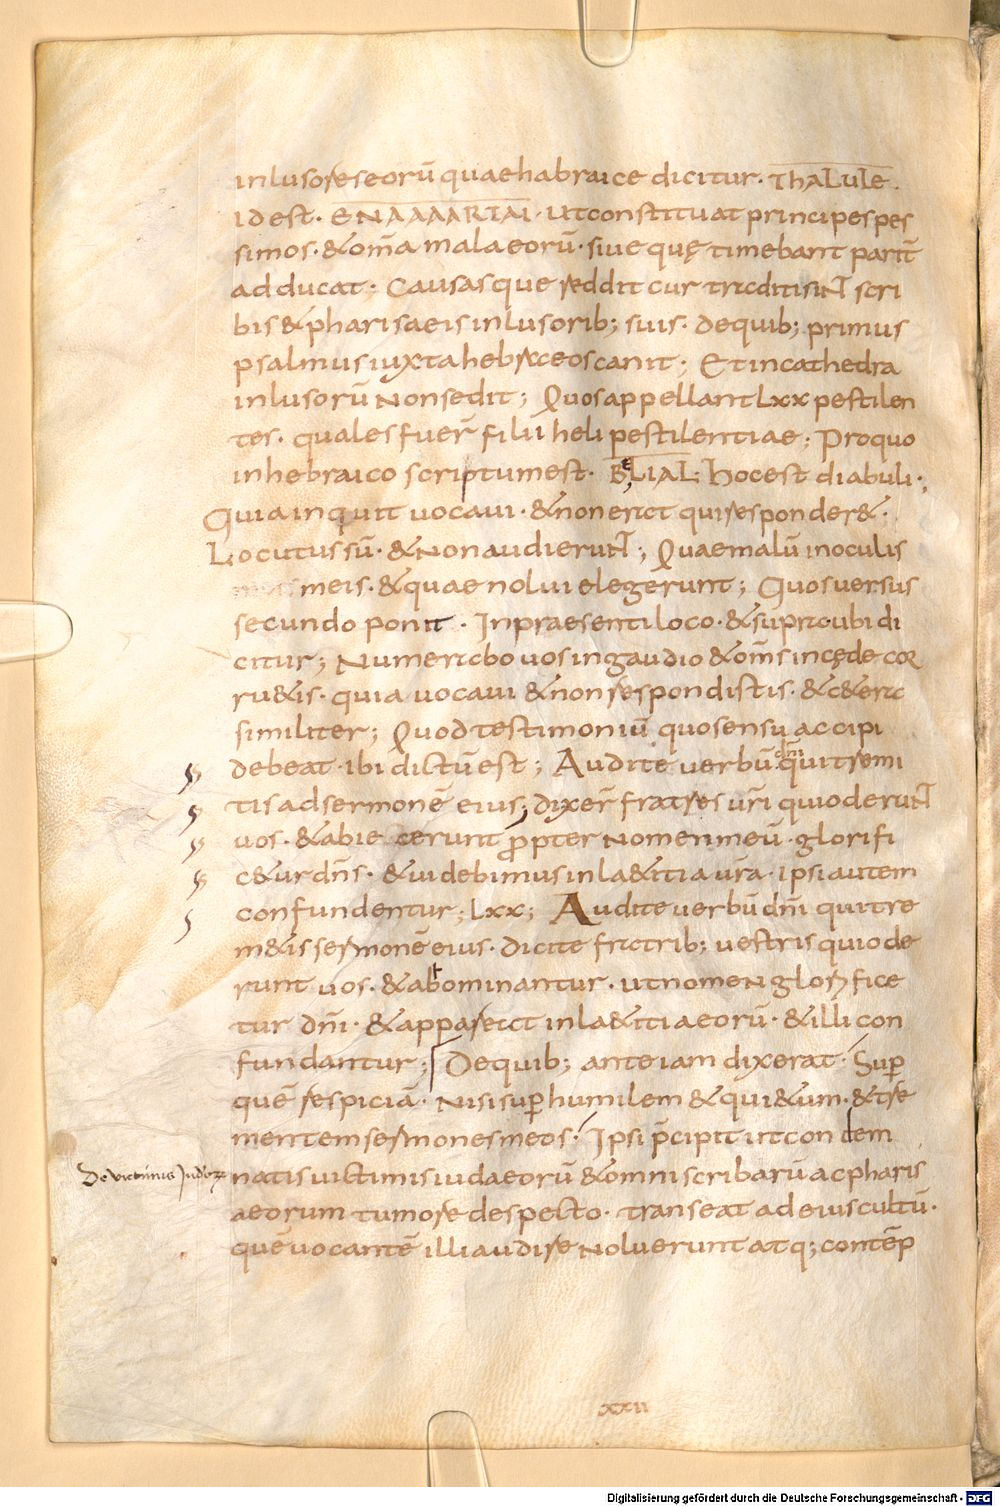 inlusores eorū quae habraice dicitur· THALULE·
id est· ENAAAARIAI· ut constituat principes pes
simos· & om̄a mala eorū· siue quę timebant parit̄
adducat· Causasque reddit cur traditi sint scri
bis & pharisaeis inlusorib; suis· dequib; primus
psalmus iuxta hebraeos canit; Et in cathedra
inlusorū non sedit; Quos appellant Lxx pestilen
tes· quales fuer̄ filii heli pestilentiae; Pro quo
in hebraico scriptum est· BeLIAL· hoc est diabuli·,
Quia inquit uocaui· & non erat qui responder&·
Locutus sū· & non audierunt; Quae malū in oculis
meis· & quae nolui elegerunt; Quos uersus
secundo ponit· In praesenti loco· & supra ubi di
citur; Numerabo uos in gaudio & om̄s in cęde cor
ru&is· quia uocaui & non respondistis· & c&era
similiter; Quod testimoniū quo sensu accipi
debeat· ibi dictū est; Audite uerbū dn̄i qui tremi
tis ad sermonē eius; dixer̄ fratres ur̄i qui oderunt
uos· & abiecerunt propter nomen meū· glorifi
c&ur dn̄s· & uidebimus in la&itia ur̄a· ipsi autem
confundentur; Lxx; Audite uerbū dn̄i qui tre
m&is sermonē eius· dicite fratrib; uestris qui ode
runt uos· & abominantur· ut nomen glorifice
tur dn̄i· & appareat in la&itia eorū· & illi con
fundantur; De quib; ante iam dixerat· Sup̄
quē respiciā· nisi sup̄ humilem & qui&um· & tre
mentem sermones meos· Ipsi p̄cipit ut condem
De victimis Judeoꝝ natis uictimis iudaeorū & omni scribarū ac pharis
aeorum tumore despecto· transeat ad eius cultū·
quē uocantē illi audire noluerunt atq; contēp
xxii
Digitalisierung gefördert durch die Deutsche Forschungsgemeinschaft - DFG